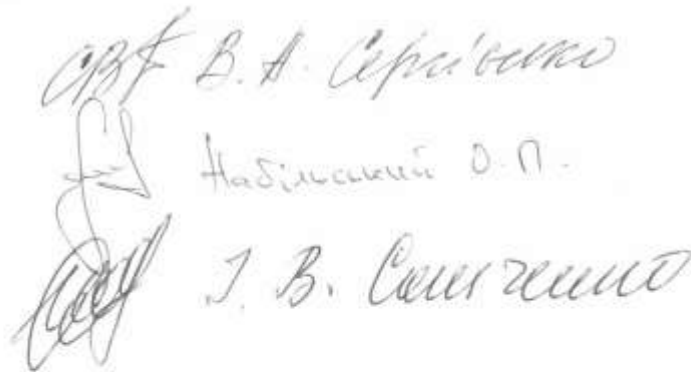 В. А. Сергієнко
Набільський О. П.
І. В. Сенченко